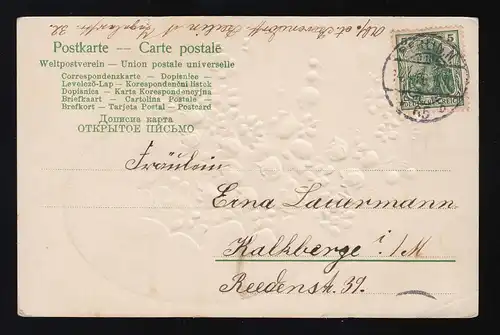 Abs. Berlin
Postkarte — Carte postale
Weltpostverein — Union postale universelle
Correspondenzkarte - Dopisnice -
Levelező-Lap - Korespondenční lístek
Dopisnica - Karta Korespondencyjna
Briefkaart - Cartolina Postale -
Brefkort - Tarjeta Postal - Postcard
Дописна карта
ОТКРЫТОЕ ПИСЬМО
5
BERLIN
Fräulein
Erna Lauermann
Kalkberge i./M
Reedenstr. 39.